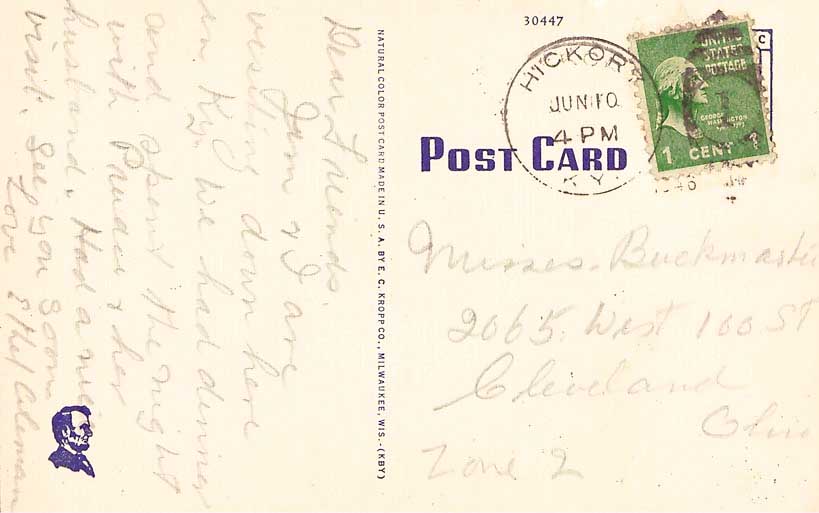 Dear Friends.
Jim & I are
visiting down here
in Ky. We had dinner
and spent the night
with & her
husband. Had a nice
visit. See you soon
Love Ethel Coleman
NATURAL COLOR POST CARD MADE IN U. S. A. BY E. C. KROPP CO., MILWAUKEE, WIS.-(KBY)
30447
HICKORY
JUN 10
4 PM
KY.
1946
UNITED
STATES
POSTAGE
GEORGE
WASHINGTON
1 CENT 1
C
POST CARD
Misses. Buckmaster
2065. West 100 St
Cleveland
Ohio
Zone 2